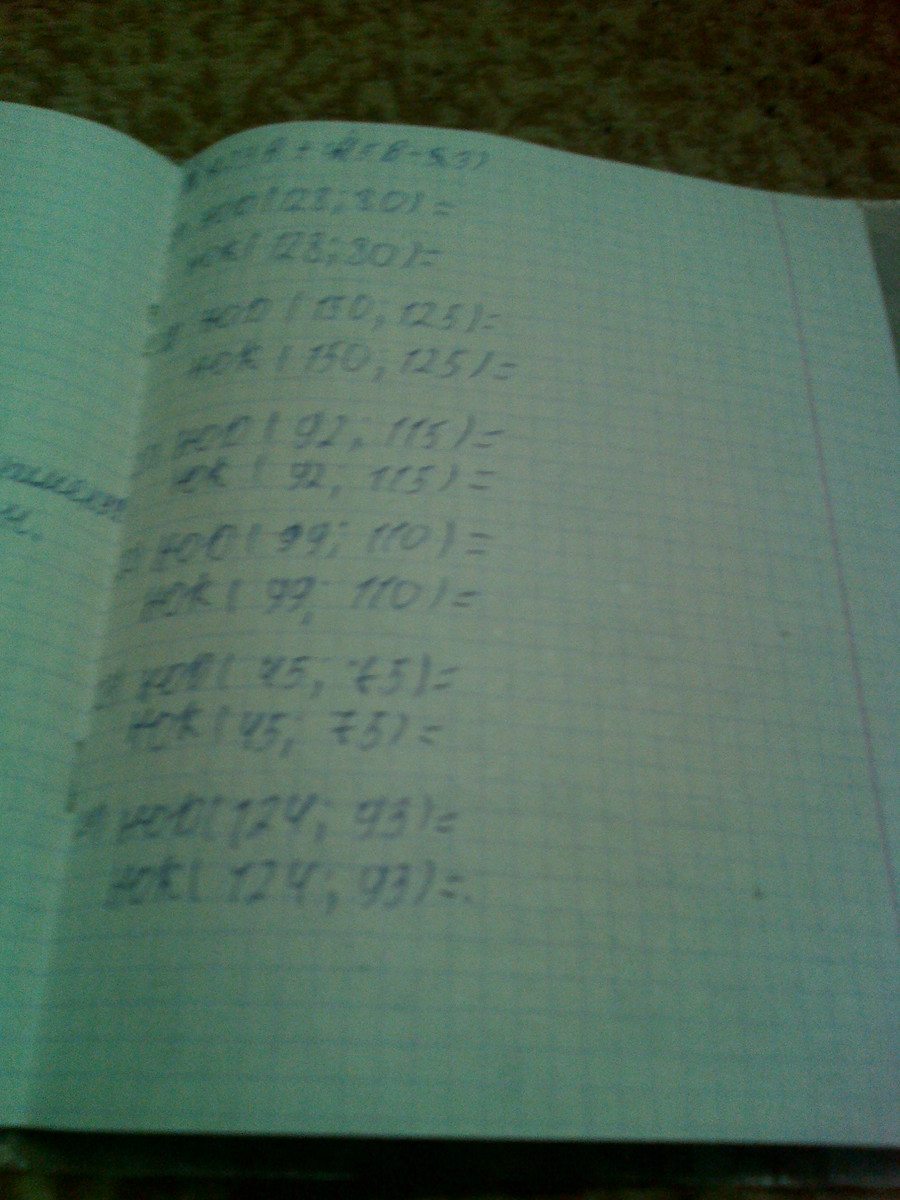 НОД (128; 80) =
НОК (128; 80) =
НОД (150; 125) =
НОК (150; 125) =
НОД (92; 115) =
НОК (92; 115) =
НОД (99; 110) =
НОК (99; 110) =
НОД (45; 75) =
НОК (45; 75) =
НОД (124; 93) =
НОК (124; 93) =.